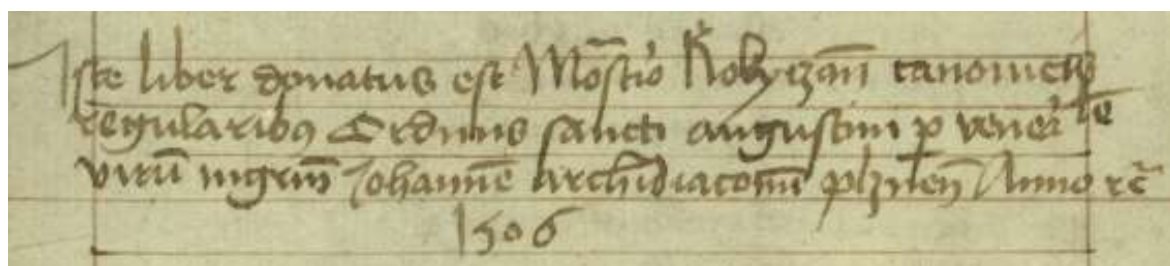 Iste liber donatus est Mōst'io Rokyczan̄ canonicis
regularibꝯ Ordinis sancti augustini ꝑ vener'le
virū mgrm̄ Johannē archidiaconū plznen̄ Anno ꝛc̄
1506